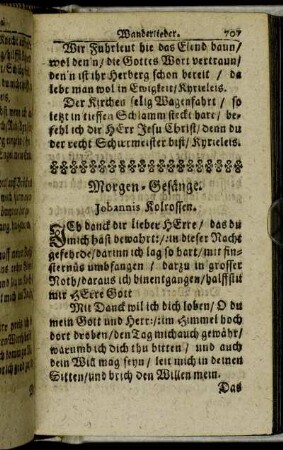 Wanderlieder. 707
Wir Fuhrleut hie das Elend baun/
wol den'n/ die Gottes Wort vertraun/
den'n ist ihr Herberg schon bereit / da
lebt man wol in Ewigkeit/ Kyrieleis.
Der Kirchen selig Wagenfahrt / so
letzt in tieffen Schlamm steckt hart / be-
fehl ich dir HErr Jesu Christ/ denn du
der recht Schirrmeister bist/ Kyrieleis.
Morgen-Gesänge.
Johannis Kolrossen.
ICh danck dir lieber HErre / das du
mich hast bewahrt:/: in dieser Nacht
gefehrde/ darinn ich lag so hart/ mit fin-
sternüs umbfangen / darzu in grosser
Noth/ daraus ich bin entgangen/ halffst du
mir HErre Gott
Mit Danck wil ich dich loben/ O du
mein Gott und Herr:/: im Himmel hoch
dort droben/ den Tag mich auch gewähr/
warumb ich dich thu bitten / und auch
dein Will mag seyn/ leit mich in deinen
Sitten/ und brich den Willen mein.
Das